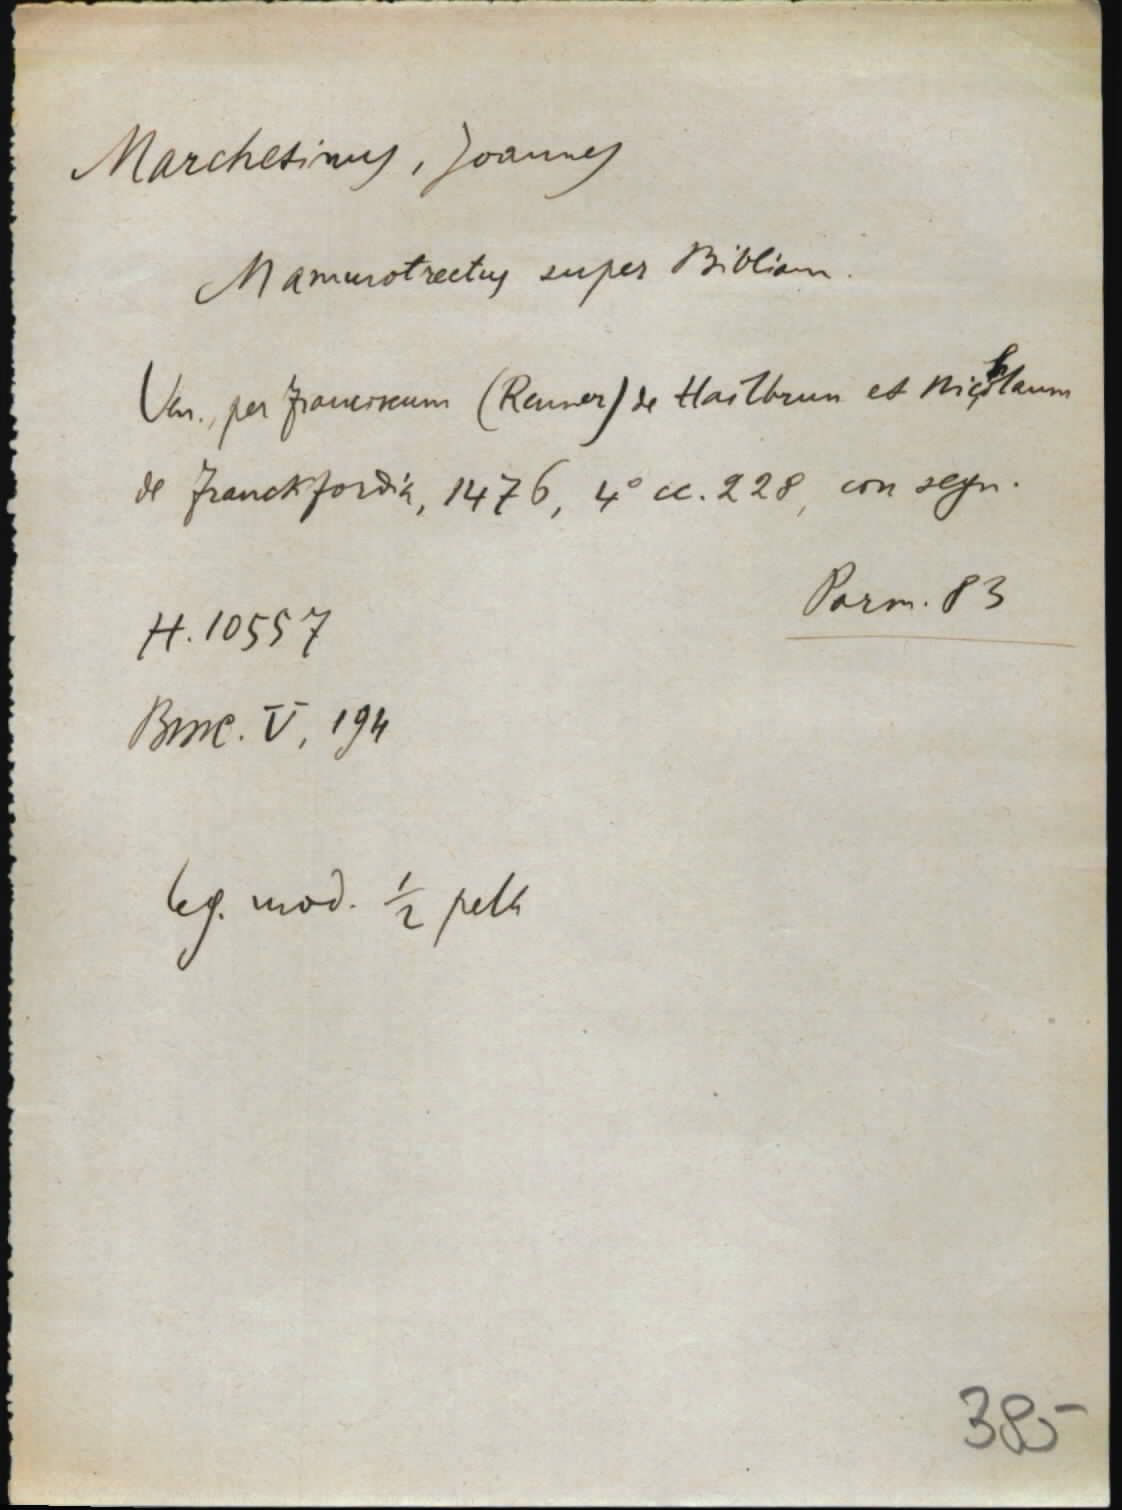 Marchesinus, Joannes
Mamurotrectus super Bibliam.
Ven., per Franciscum (Renner) de Hailbrun et Nicolaum
de Franckfordia, 1476, 4° cc. 228, con segn.
Parm. 83
H. 10557
BMC. V, 194
leg. mod. ½ pelle
385